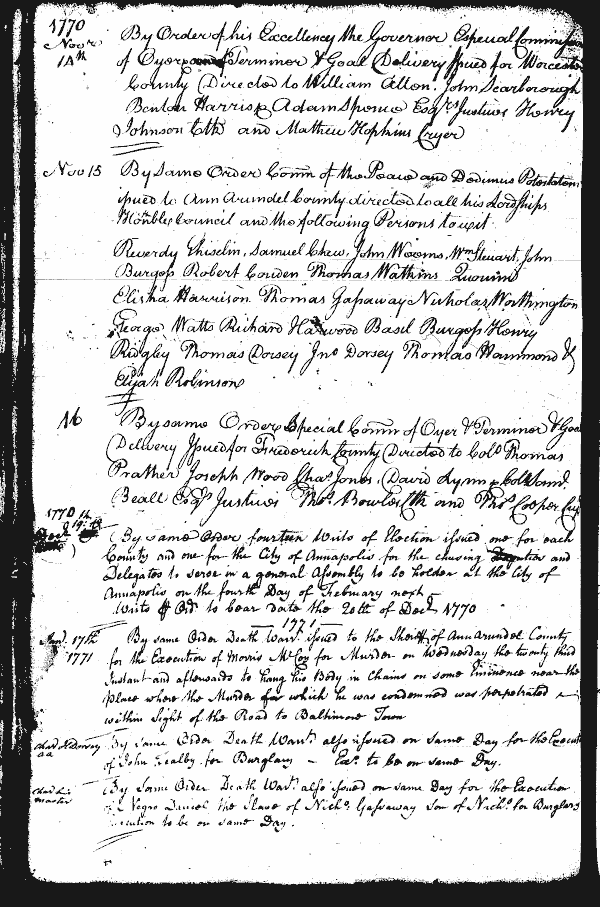 1770
Novr 14th By Order of his Excellency the Governor Especial Commission
of Oyer and Terminer & Goal Delivery Issued for Worcester
County (Directed to William Allen, John Scarborough
Benton Harris & Adam Spence Esqrs Justices Henry
Johnson Clk and Mathew Hopkins Cryer
Nov 15 By Same Order Comn of the Peace and Dedimus Potestatem
issued to Ann Arundel County directed to all his Lordships
Honble Council and the following Persons to wit
Reverdy Ghiselin, Samuel Chew, John Weems, Wm Steuart, John
Burgess Robert Couden Thomas Watkins Quorums
Elisha Harrison Thomas Gassaway Nicholas Worthington
George Watts Richard Harwood Basil Burgess Henry
Ridgley Thomas Dorsey Jno Dorsey Thomas Hammond &
Elijah Robinson
16 By same Order Special Comn of Oyer & Terminer & Goal
Delivery Issued for Frederick County (Directed to Colo Thomas
Prather Joseph Wood Chas Jones, David Lynn & Colo Saml
Beall Esqs Justices Thos Bowles Clk and Thos Cooper Cryr
1770
By same Order fourteen Writs of Election issued one for each
County and one for the City of Annapolis for the chusing and
Delegates to serve in a general Assembly to be holden at the City of
Annapolis on the fourth Day of February next
Writs Ord to bear date the 20th of Decr 1770
1771
17th 1771 By same Order Death Wart issued to the Sheriff of Ann Arundel County
for the Execution of Morris McCoy for Murder on Wednesday the twenty third
Instant and afterwards to hang his Body in Chains on some Eminence near the
Place where the Murder for which he was condemned was perpetrated
within Sight of the Road to Baltimore Town
By same Order Death Wart also issued on same Day for the Execut
of John Sealby for Burglary - Exn to be on same Day.
By Same Order Death Wart also issued on same Day for the Execution
of Negro Daniel the Slave of Nichs Gassaway son of Nichs for Burglary
to be on same Day.